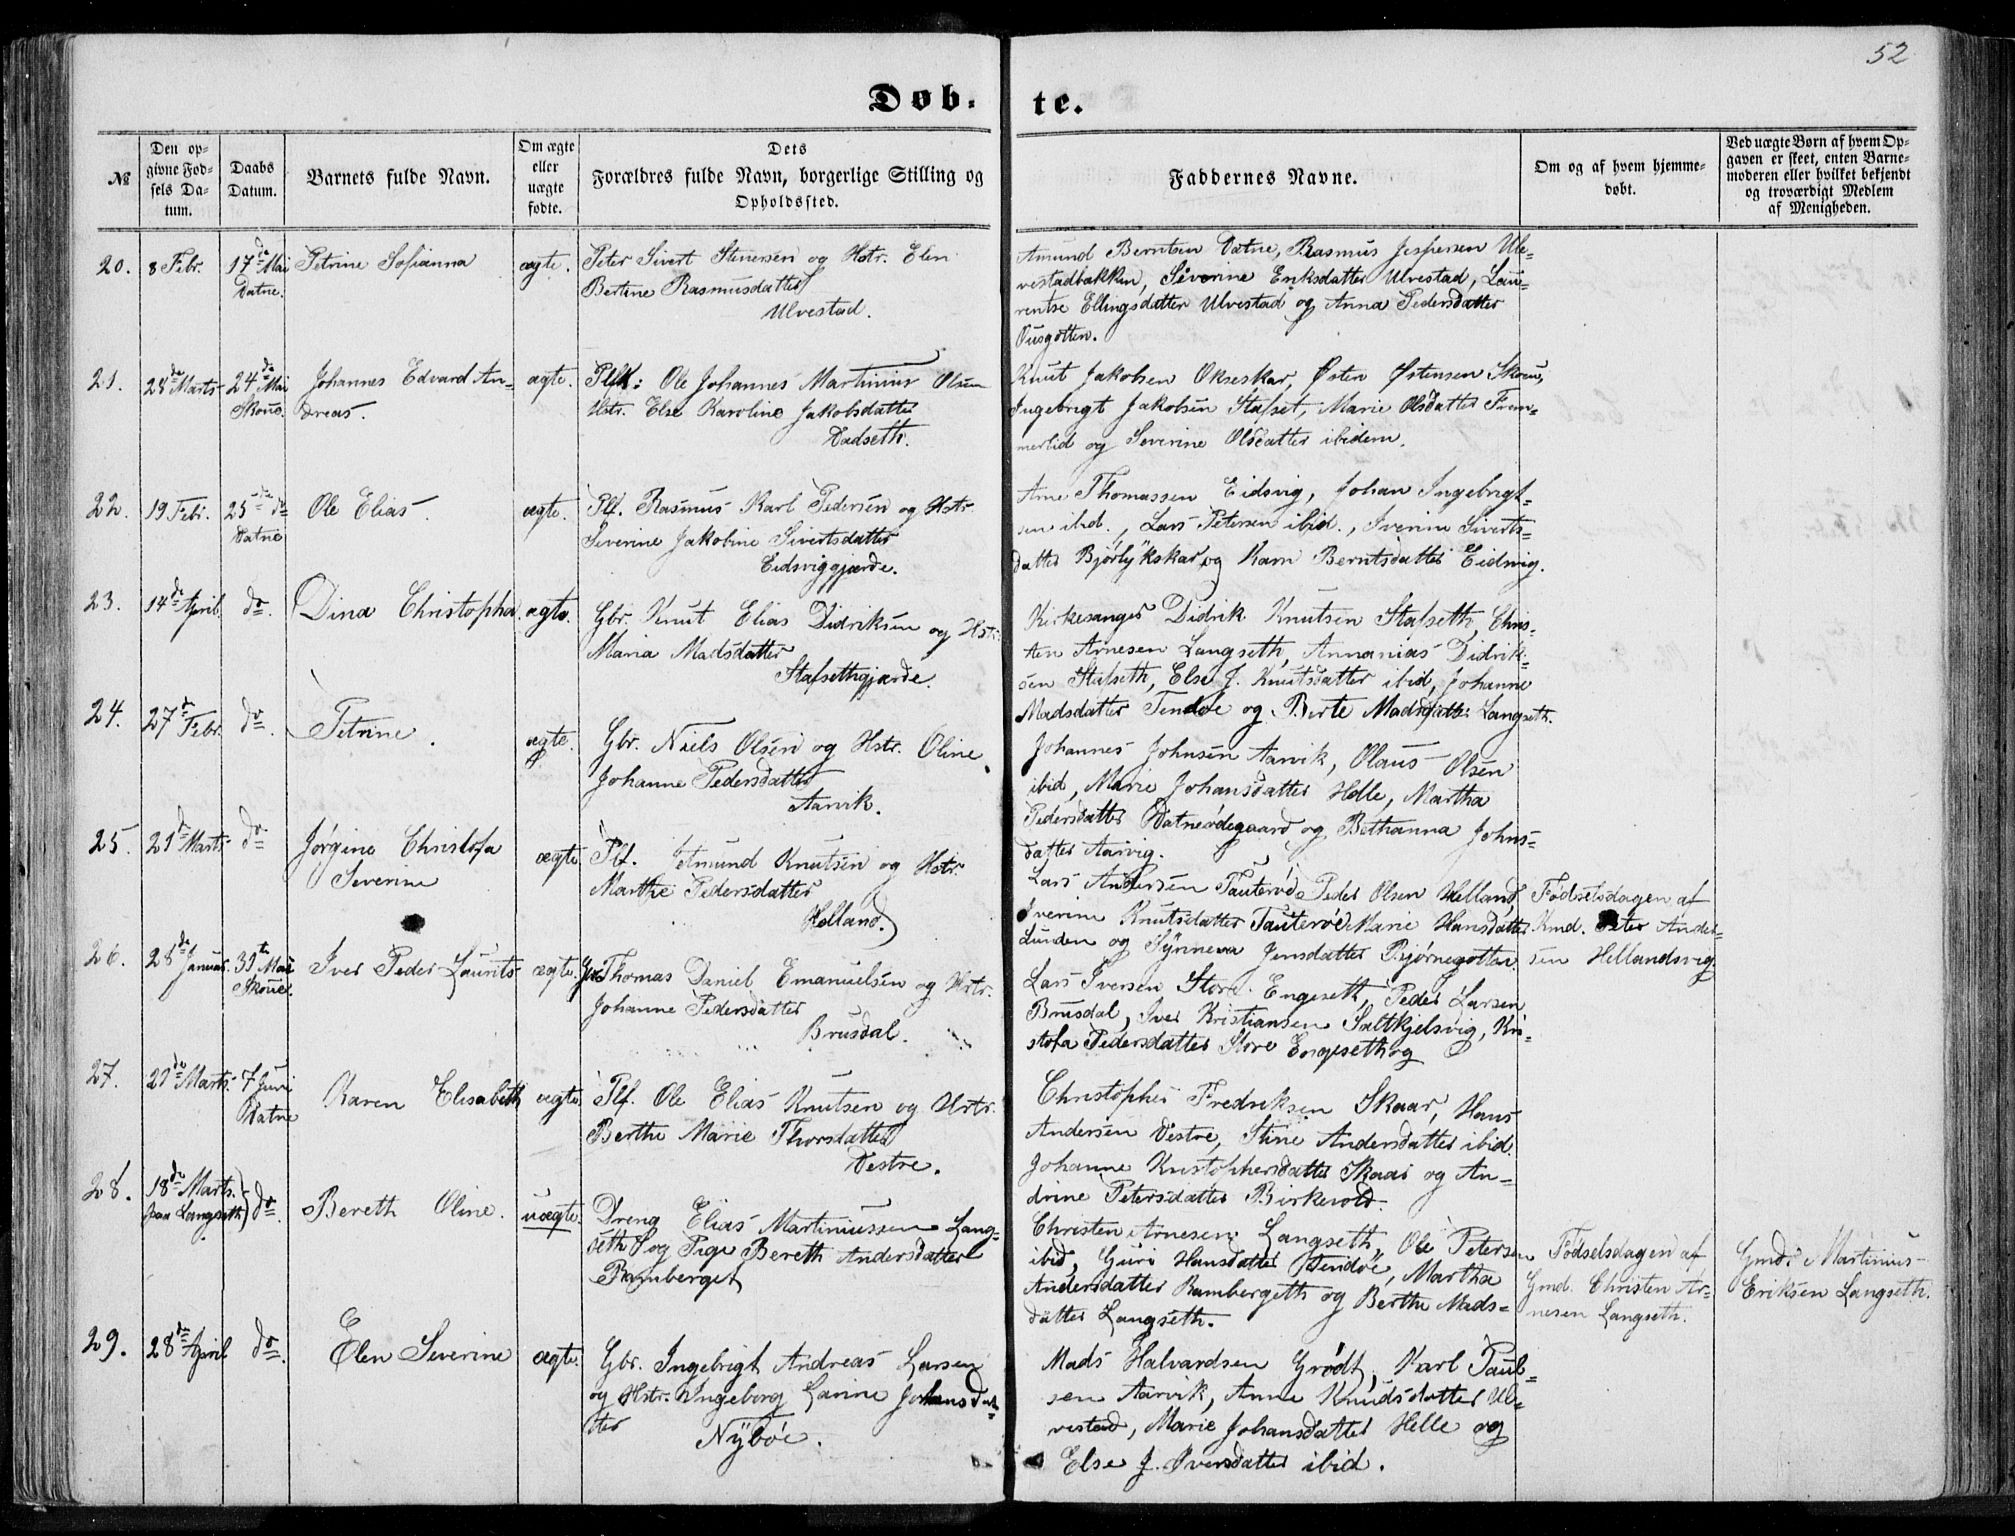 52
Døb-
te.
№
Den op-
givne Fød-
sels Da-
tum.
Daabs
Datum.
Barnets fulde Navn.
Om ægte
eller
uægte
fødte.
Dets
Forældres fulde Navn, borgerlige Stilling og
Opholdssted.
Faddernes Navne.
Om og af hvem hjemme-
døbt.
Ved uægte Børn af hvem Op-
gaven er skeet, enten Barne-
moderen eller hvilket bekjendt
og troværdigt Medlem
af Menigheden.
20.
8 Febr.
17de Mai
Vatne.
Petrine Sofianna
ægte.
Peter Sivert Stenersen og Hstr. Elen
Bertine Rasmusdatter
Ulvestad.
Amund Berntsen Vatne, Rasmus Jespersen Ule-
vestadbakken, Severine Eriksdatter Ulvestad, Lau-
rentse Ellingsdatter Ulvestad og Anna Pedersdatter
Ousgotten.
21.
28de Marts
24de Mai
Skoue.
Johannes Edvard An-
dreas.
ægte.
Plf: Ole Johannes Martinius Olsen
Hstr. Else Karoline Jakobsdatter
Vadseth.
Knut Jakobsen Okseskar, Østen Østensen Skoue,
Ingebrigt Jakobsen Stafset, Marie Olsdatter Frem-
merlid og Severine Olsdatter ibidem.
22.
19 Febr.
25de do
Vatne
Ole Elias.
ægte.
Plf. Rasmus Karl Pedersen og Hstr.
Severine Jakobine Sivertsdatter
Eidsviggjærde.
Arne Thomassen Eidsvig, Johan Ingebrigt-
sen ibid., Lars Petersen ibid., Iverine Siverts-
datter Bjørlykskar og Karn Berntsdatter Eidsvig.
23.
14de April
do.
Dina Christopha.
ægte.
Gbr. Knut Elias Didriksen og Hstr.
Maria Madsdatter
Stafsethgjærde.
Kirkesanger Didrik Knutsen Stafseth, Chris-
ten Arnesen Langseth, Annanias Didrik-
sen Stafseth, Else J. Knutsdatter ibid, Johanne
Madsdatter Tendøe og Birte Madsdatter Langseth.
24.
27de Febr.
do.
Petrine.
ægte.
Gbr. Niels Olsen og Hstr. Oline
Johanne Pedersdatter
Aarvik.
Johannes Johnsen Aarvik, Olaus Olsen
ibid, Marie Johansdatter Helle, Martha
Pedersdatter Vatneødegaard og Bethanna Johns-
datter Aarvig.
25.
21de Marts
do
Jørgine Christofa
Severine
ægte
Plf. Ammund Knutsen og Hstr.
Marthe Pedersdatter
Helland.
Lars Andersen Tauterøe Peder Olsen Helland,
Iverine Knutsdatter Tauterøe Marie Hansdatter
Lunden og Synneva Jensdatter Bjørnegotten.
Fødselsdagen af
Kmd. Peter Ander-
sen Hellandsvig
26.
28de Januar.
31te Mai
Skoue.
Iver Peder Laurits
ægte.
Gbr Thomas Daniel Emanuelsen og Hstr.
Johanne Pedersdatter
Brusdal.
Lars Iversen Store Engeseth, Peder Larsen
Brusdal, Iver Kristiansen Saltkjelsvig, Kri-
stofa Pedersdatter Store Engeseth og
27.
21de Marts.
7 Juni
Vatne
Karen Elisabeth
ægte.
Plf. Ole Elias Knutsen og Hstr.
Berthe Marie Thorsdatter
Vestre.
Christopher Fredriksen Skaar, Hans
Andersen Vestre, Stine Andersdatter ibid.
Johanne Kristophersdatter Skaar og An-
drine Petersdatter Birkevold.
28.
18de Marts.
paa Langseth
do.
Bereth Oline.
uægte.
Dreng Elias Martiniussen Lang-
seth og Pige Bereth Andersdatter
Ramberget
Christen Arnesen Langseth, Ole Petersen
ibid, Guri Hansdatter Tendøe, Martha
Andersdatter Rambergeth og Berthe Mads-
datter Langseth.
Fødselsdagen af
Gmd. Christen Ar-
nesen Langseth.
Gmd: Martinius
Eriksen Langseth.
29.
28de April
do.
Elen Severine
ægte.
Gbr. Ingebrigt Andreas Larsen
og Hstr. Ingeborg Larine Johansdat-
ter
Nybøe.
Mads Halvardsen Grødt, Karl Paul-
sen Aarvik, Anne Knudsdatter Ul-
vestad, Marie Johansdatter Helle og
Else J. Iversdatter ibid.